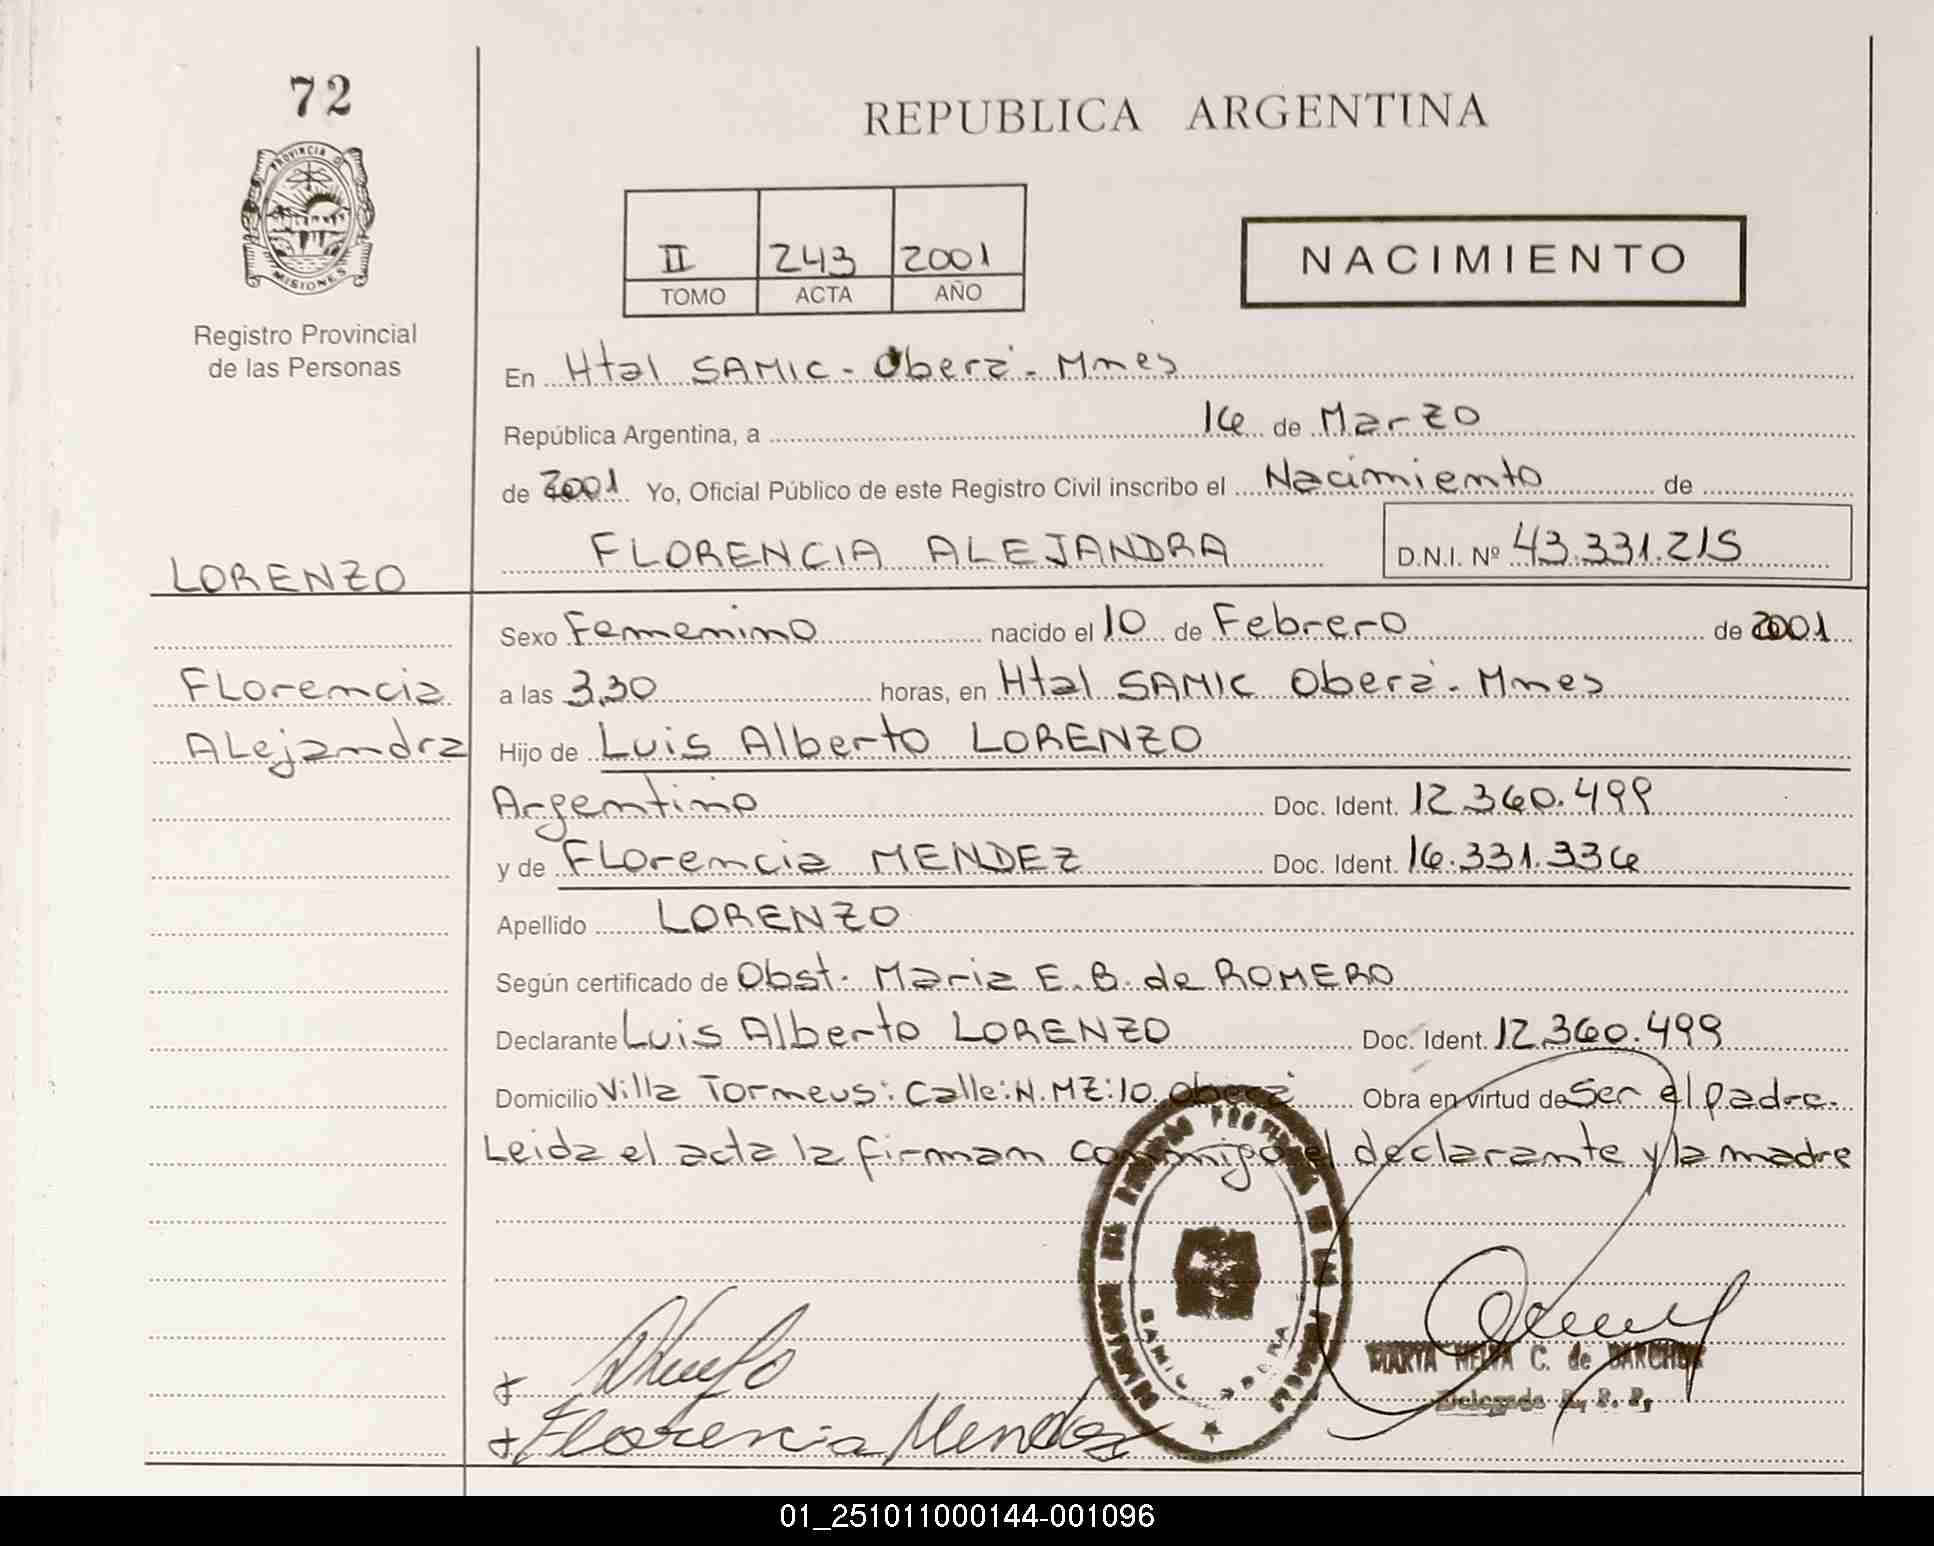 72
REPUBLICA ARGENTINA
PROVINCIA D
MISIONES
Registro Provincial
de las Personas
II 243 2001
TOMO ACTA AÑO
NACIMIENTO
En Htal SAMIC - Oberá - Mnes
República Argentina, a 16 de Marzo
de 2001 Yo, Oficial Público de este Registro Civil inscribo el Nacimiento de
FLORENCIA ALEJANDRA D.N.I. Nº 43.331.215
LORENZO
Sexo Femenino nacido el 10 de Febrero de 2001
Florencia
a las 3,30 horas, en Htal SAMIC Oberá - Mnes
Alejandra
Hijo de Luis Alberto LORENZO
Argentino Doc. Ident. 12.360.499
y de Florencia MENDEZ Doc. Ident. 16.331.336
Apellido LORENZO
Según certificado de Obst. Maria E. B. de ROMERO
Declarante Luis Alberto LORENZO Doc. Ident. 12.360.499
Domicilio Villa Torneus: Calle: N. MZ: 10. Oberá Obra en virtud de Ser el padre.
Leida el acta la firman conmigo el declarante y la madre
MARTA NELFA C. de
Delegada R. P. P.
Florencia Mendez
01_251011000144-001096